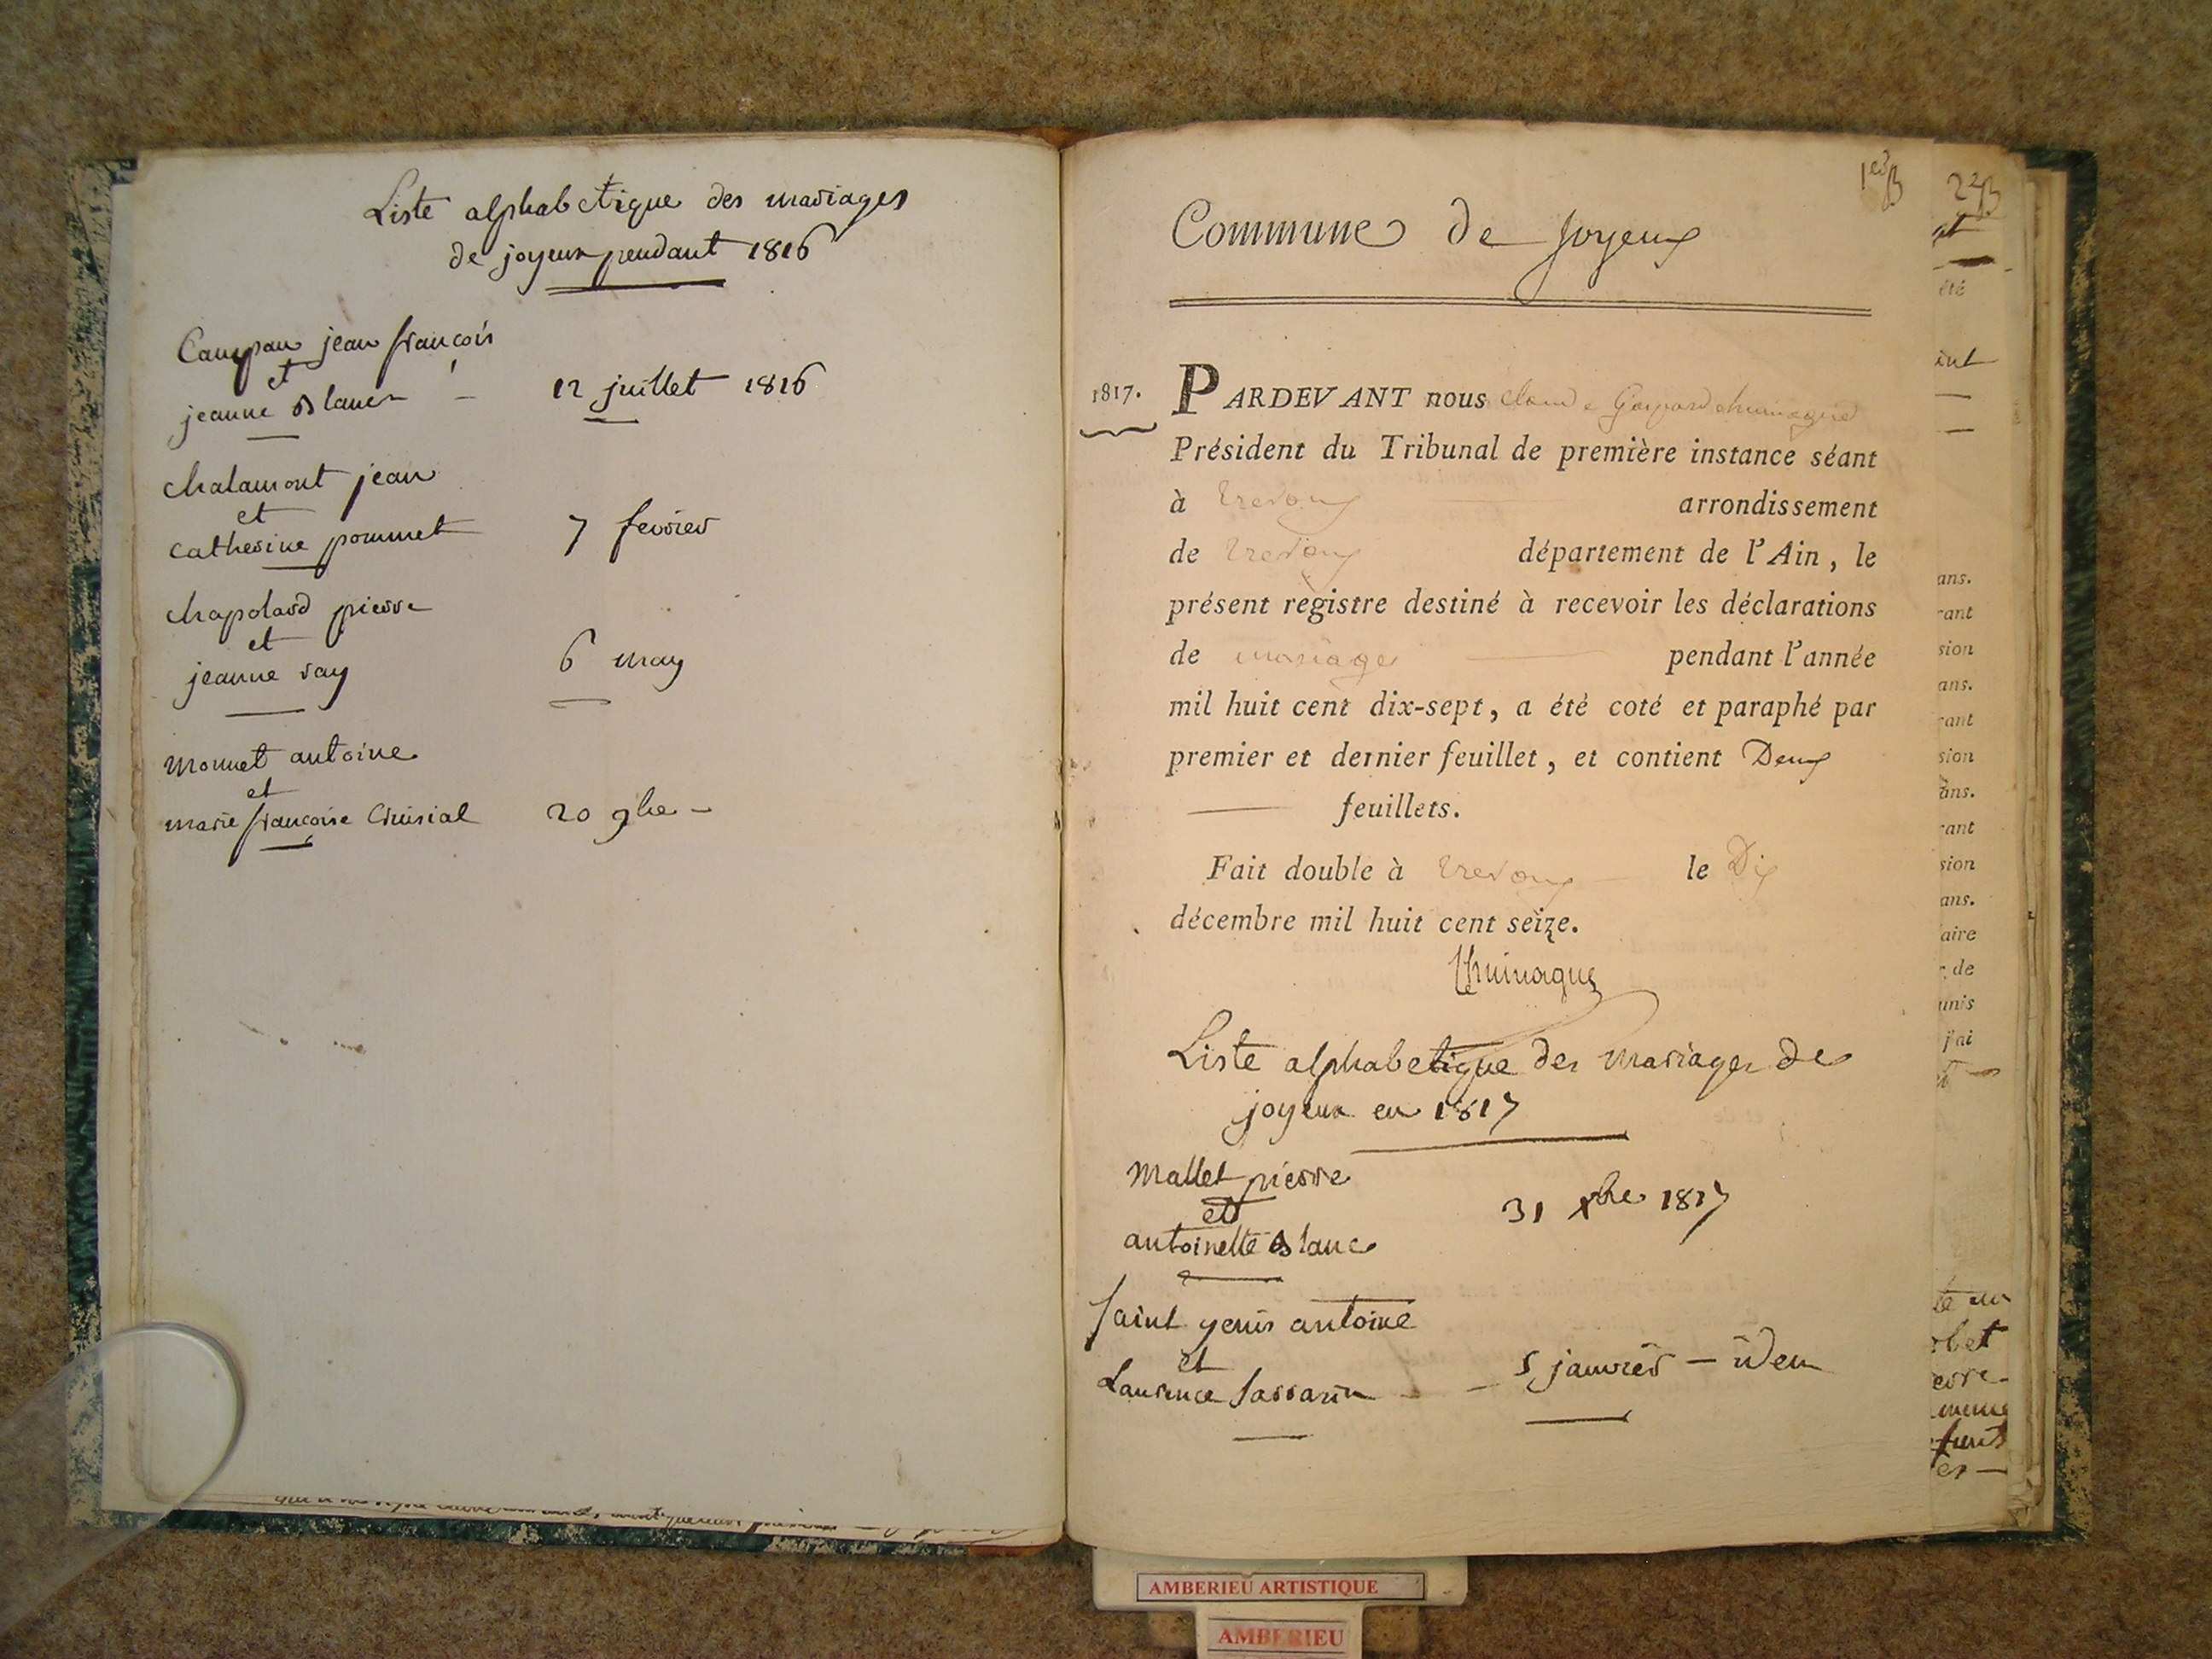 Liste alphabetique des mariages
de joyeux pendant 1816
Campan jean françois
et
jeanne Blanc - 12 juillet 1816
chalamont jean
et
catherine pommet 7 fevrier
chapolard pierre
et
jeanne ray 6 may
monnet antoine
et
marie françoise 20 9bre -
1er
Commune de Joyeux
1817. PARDEVANT nous Claude Gaspard
Président du Tribunal de première instance séant
à Trevoux arrondissement
de Trevoux département de l'Ain, le
présent registre destiné à recevoir les déclarations
de mariage pendant l'année
mil huit cent dix-sept, a été coté et paraphé par
premier et dernier feuillet, et contient Deux
feuillets.
Fait double à Trevoux le Dix
décembre mil huit cent seize.
Liste alphabetique des mariages de
joyeux en 1817
Mallet pierre
et 31 xbre 1817
antoinette Blanc
Saint genis antoine
et
Laurence - 5 janvier - idem
2
été
int
ans.
rant
sion
ans.
rant
sion
ans.
rant
sion
ans.
aire
de
unis
j'ai
AMBERIEU ARTISTIQUE
AMBERIEU